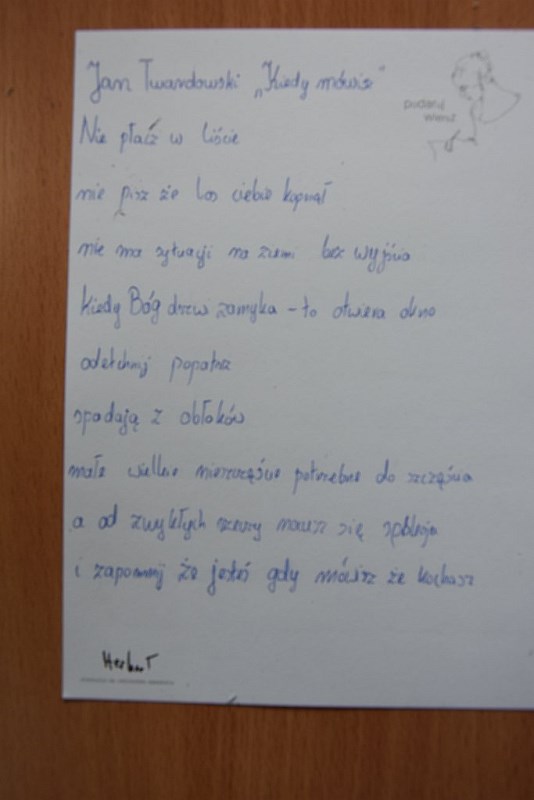 Jan Twardowski „Kiedy mówisz"
podaruj wiersz
Nie płacz w liście
nie pisz że los ciebie kopnął
nie ma sytuacji na ziemi bez wyjścia
kiedy Bóg drzwi zamyka – to otwiera okno
odetchnij popatrz
spadają z obłoków
małe wielkie nieszczęścia potrzebne do szczęścia
a od zwykłych rzeczy naucz się spokoju
i zapomnij że jesteś gdy mówisz że kochasz
Herbert